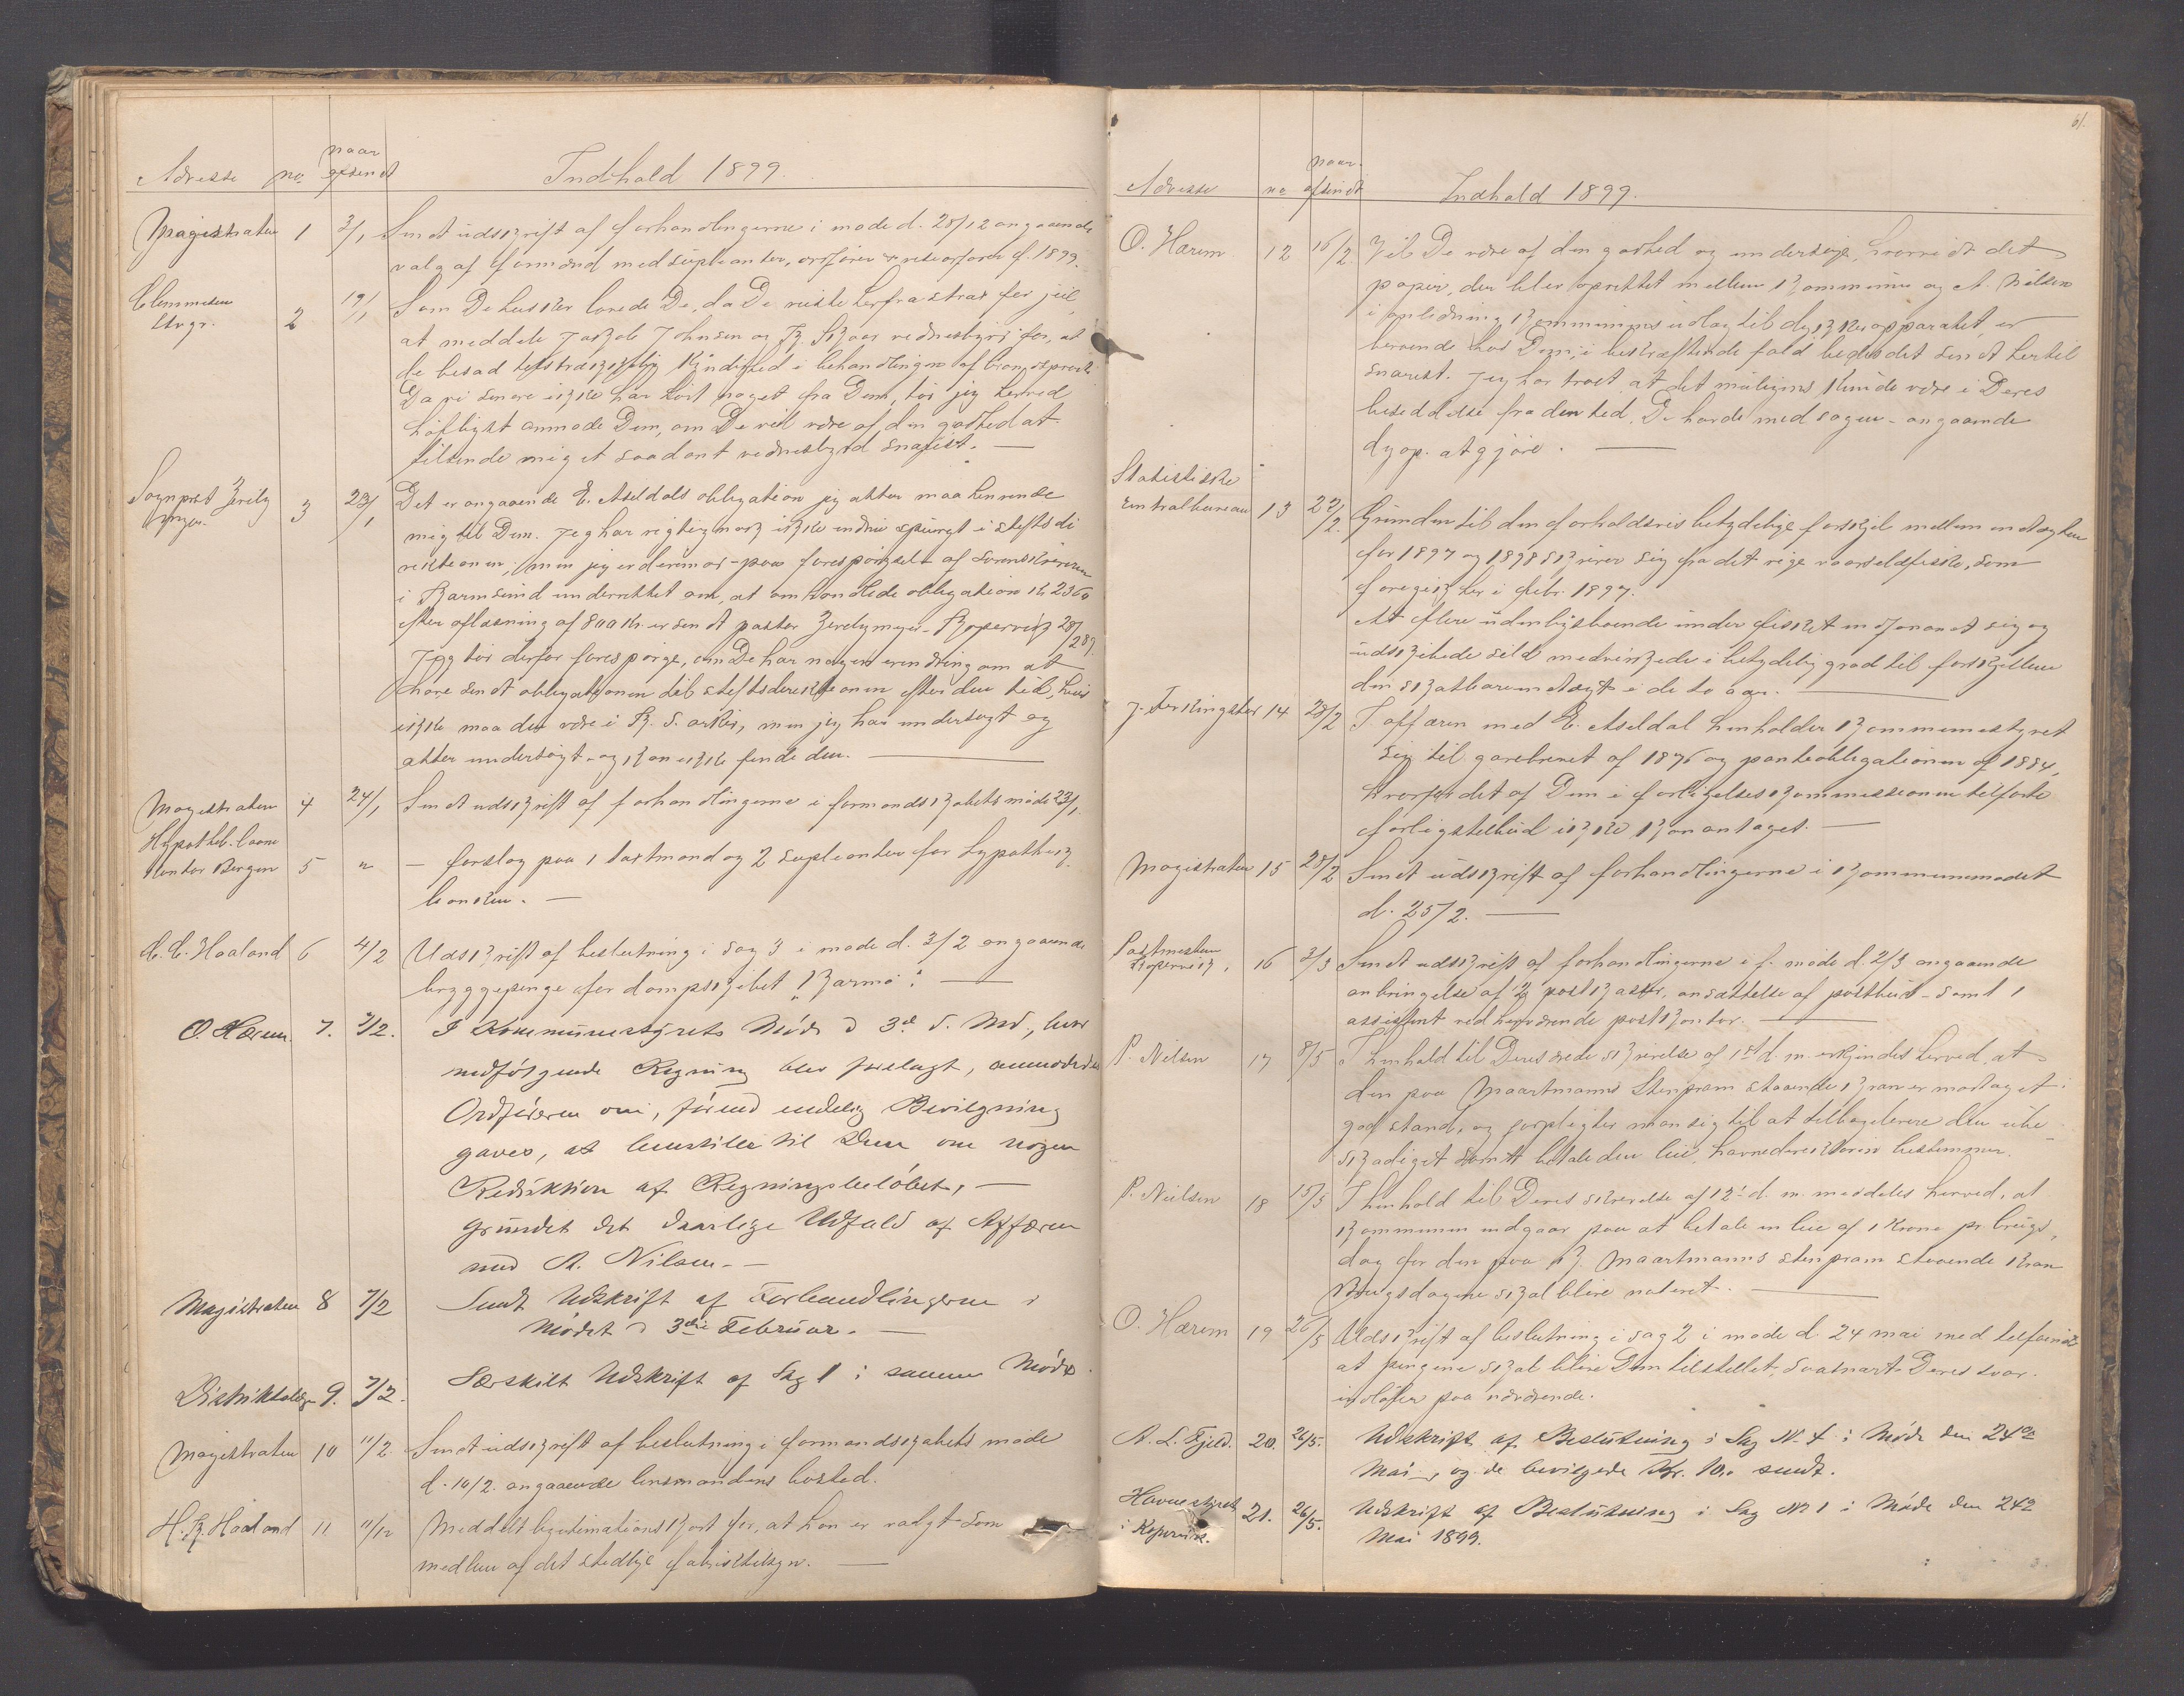 Adresse no. naar afsendt Indhold 1899.
Magistraten 1 3/1 Sendt udskrift af forhandlingerne i møde d. 28/12 angaaende
valg af formænd med suppleanter, ordfører & viseordfører f. 1899.
Clemmetsen 2 19/1 Som De husker lovede De, da De reiste herfra strax før jul
at meddele Jakob Johnsen og K. vidnesbyrd for, at
de besad tilstrækkelig kyndighed i behandlingen af
Da vi senere ikke har hørt noget fra Dem, tør jeg herved
høfligst anmode Dem, om De vil være af den godhed at
tilsende mig et saadant vidnesbyrd snarest. —
Sognprst 3 23/1 Det er angaaende E. Aseldals obligation jeg atter maa henvende
mig til Dem. Jeg har rigtignok ikke endnu spurgt i stiftsdi
rektionen; men jeg er derimod – paa forespørgsel af Sorenskriveren
i Karmsund underrettet om, at omhandlede obligation
efter aflæsning af er sendt pastor Kopervik 28/
2 89.
Jeg tør derfor forespørge, om De har nogen erindring om at
have sendt obligationen til stiftsdirektionen efter den tid, hvis
ikke maa den være i K. S. arkiv, men jeg har undersøgt og
atter undersøgt – og kan ikke finde den. —
Magistraten 4 24/1 Sendt udskrift af forhandlingerne i formandskabets møde 23/1.
Hypothek. laane
kontor Bergen 5 " — forslag paa 1 taxtmand og 2 supleanter for hypothek
banken. —
C. C. Haaland 6 4/2 Udskrift af beslutning i sag 3 i møde d. 3/2 angaaende
bryggepenge for dampskibet "Karmø". —
O. Hærem. 7. 7/2. I Kommunestyrets Møde d 3die d. Md, hvor
medfølgende Regning blev forelagt, anmodedes
Ordføreren om, førend endelig Bevilgning
gaves, at henstille til Dem om nogen
Reduktion af Regningsbeløbet, —
grundet det daarlige Udfald af Affæren
med A. Nilsen. —
Magistraten 8 7/2 Sendt Udskrift af Forhandlingerne i
Mødet d 3die Februar. —
Distriktslæge 9. 7/2. Særskilt Udskrift af Sag 1 i samme Møde.
Magistraten 10 11/2 Sendt udskrift af beslutning i formandskabets møde
d. 10/2. angaaende lensmandens bosted.
H. K. Haaland 11 11/12 Meddelt legitimationskort for, at han er valgt som
medlem af det stedlige fabriktilsyn. —
61.
Adresse no naar afsendt Indhold 1899.
O. Hærem 12 16/2. Vil De være af den godhed og undersøge, hvorvidt det
papir, der blev oprettet mellem kommune og A. Nilsen
i anledning kommunens udlæg til dykkerapparatet, er
beroende hos Dem; i bekræftende fald bedes det sendt hertil
snarest. Jeg har troet at det muligens kunde være i Deres
besiddelse fra den tid, De havde med sagen – angaaende
dyap. at gjøre. —
Statistiske
Centralbureau 13 22/2. Grunden til den forholdsvis betydelige forskjel mellem indtægten
for 1897 og 1898 skriver sig fra det rige vaarsildfiske, som
foregik her i febr. 1897.
At flere udenbysboende under fisket indfandt sig og
udskibede sild medvirkede i betydelig grad til forskjellen
den skatbare indtægt i de to aar. —
J. Ferkingstad 14 28/2 I affæren med E. Aseldal henholder kommunestyret
sig til gavebrevet af 1876 og panteobligationen af 1884,
hvorfor det af Dem i forligelseskommissionen tilførte
forligstilbud ikke kan antaget. —
Magistraten 15 28/2 Sendt udskrift af forhandlingerne i kommunemødet
d. 25/2. —
Postmesteren
Kopervik, 16 3/3 Sendt udskrift af forhandlingerne i f. møde d. 2/3 angaaende
anbringelse af 2 postkasser, ansættelse af postbud – samt 1
assistent ved herværende postkontor. —
P. Nilsen 17 8/5 I henhold til Deres ærede skrivelse af 1st d. m. erkjendes herved, at
den paa Maartmanns Stenpram staaende kran er modtaget i
god stand, og forpligter man sig til at tilbagelevere den ube-
skadiget samt betale den leie, havnedirektøren bestemmer.
P. Nielsen 18 15/5 I henhold til Deres skrivelse af 12' d. m. meddeles herved, at
kommunen indgaar paa at betale en leie af 1 krone pr. brugs-
dag for den paa K. Maartmanns stenpram staaende kran
Brugsdagene skal blive noteret. —
O. Hærem 19 26/5 Udskrift af beslutning i sag 2 i møde d. 24 mai med tilføiende
at pengene skal blive Dem tilstillet, saasnart Deres svar
indløber paa nærværende.
A. L. Fjeld. 20. 26/5. Udskrift af Beslutning i Sag N. 4 i Møde den 24de
Mai –, og de bevilgede Kr. 10.. sendt.
Havnestyret
i Kopervik. 21. 26/5. Udskrift af Beslutning i Sag No 1 i Møde den 24de
Mai 1899.